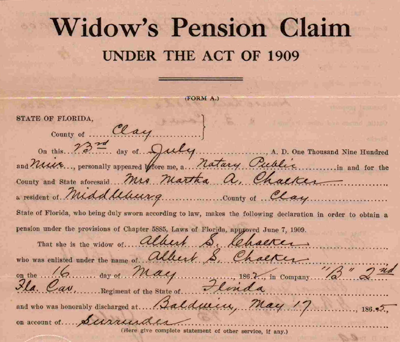 Widow's Pension Claim
UNDER THE ACT OF 1909
(FORM A.)
STATE OF FLORIDA,
County of Clay
On this 23rd day of July A. D. One Thousand Nine Hundred
and Nine, personally appeared before me, a Notary Public in and for the
County and State aforesaid Mrs Martha A. Chalker
a resident of Middleburg County of Clay
State of Florida, who being duly sworn according to law, makes the following declaration in order to obtain a
pension under the provisions of Chapter 5885, Laws of Florida, approved June 7, 1909.
That she is the widow of Albert S. Chalker
who was enlisted under the name of Albert S. Chalker
on the 16 day of May, 1862, in Company "B" 2nd
Fla Cav. Regiment of the State of Florida
and who was honorably discharged at Baldwin, May 17, 1865,
on account of Surrender
(Here give complete statement of other service, if any.)